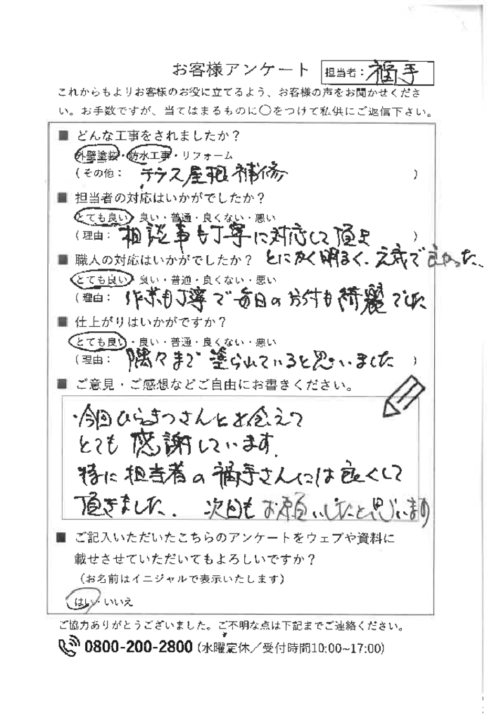 お客様アンケート 担当者: 福手
これからもよりお客様のお役に立てるよう、お客様の声をお聞かせくださ
い。お手数ですが、当てはまるものに〇をつけて私供にご返信下さい。
■ どんな工事をされましたか?
外壁塗装・防水工事・リフォーム
(その他: テラス屋根補修 )
■ 担当者の対応はいかがでしたか?
とても良い・良い・普通・良くない・悪い
(理由: 相談事も丁寧に対応して頂き )
■ 職人の対応はいかがでしたか? とにかく明るく、元気で良かった、
とても良い・良い・普通・良くない・悪い
(理由: 作業も丁寧で毎日の片付も綺麗でした
■ 仕上がりはいかがですか?
とても良い・良い・普通・良くない・悪い
(理由: 隅々まで塗られていると思いました )
■ ご意見・ご感想などご自由にお書きください。
・今回ひらきつさんと出会えて
とても感謝しています。
特に担当者の福手さんには良くして
頂きました。次回もお願いしたいと思います
■ ご記入いただいたこちらのアンケートをウェブや資料に
載せさせていただいてもよろしいですか?
(お名前はイニジャルで表示いたします)
はい・いいえ
ご協力ありがとうございました。ご不明な点は下記までご連絡ください。
0800-200-2800 (水曜定休/受付時間10:00~17:00)